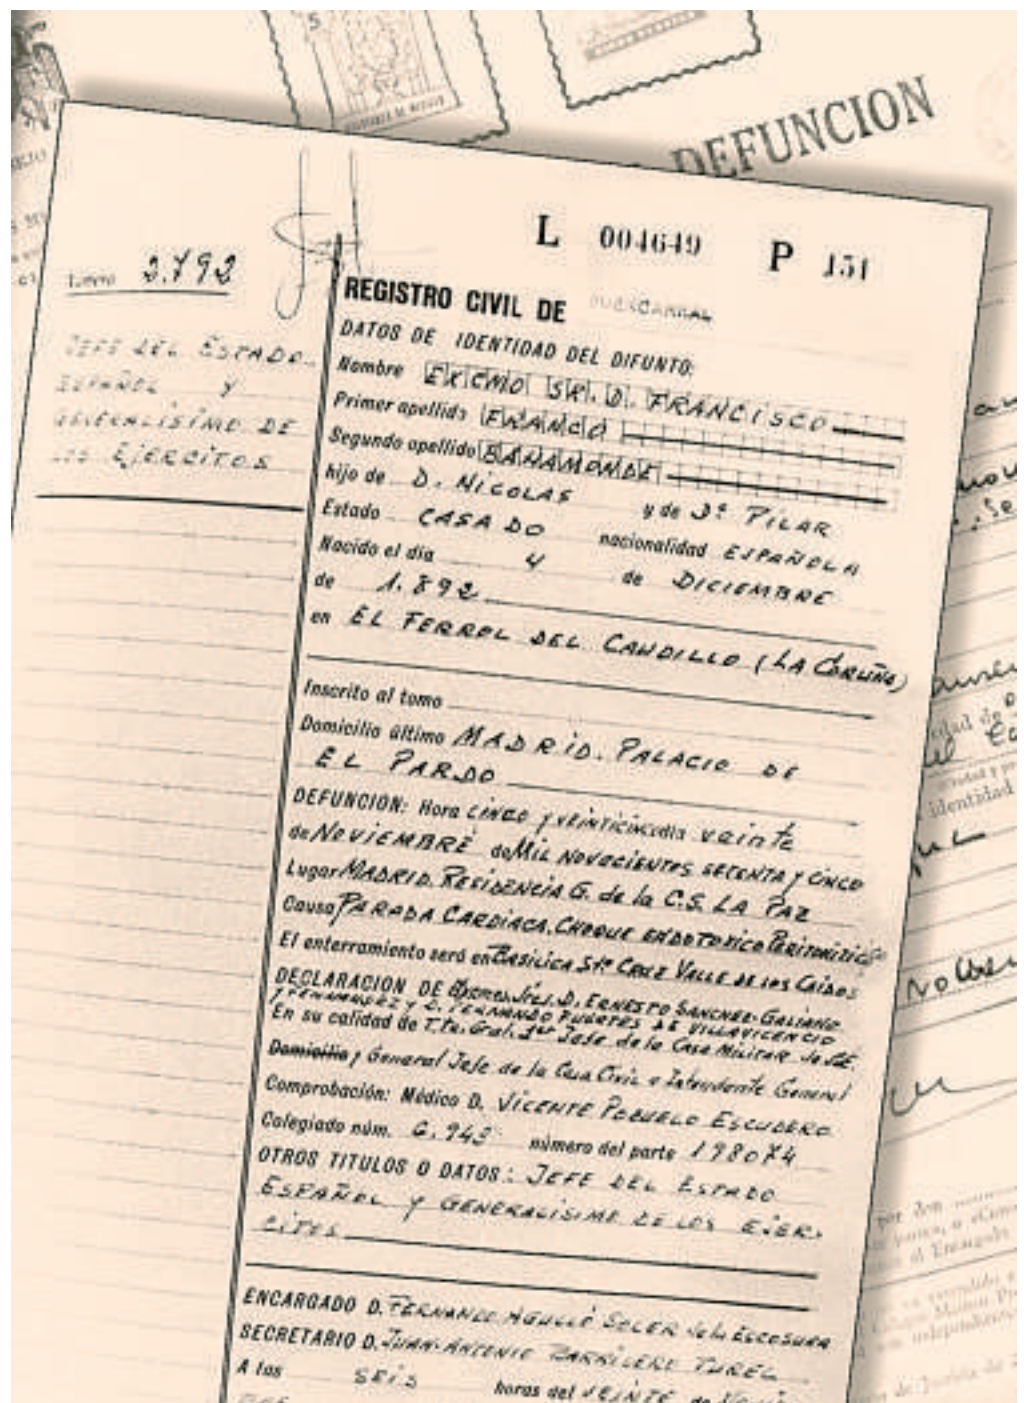 DEFUNCION
L 004649 P 151
3.792
REGISTRO CIVIL DE
DATOS DE IDENTIDAD DEL DIFUNTO:
JEFE DEL ESTADO
ESPAÑOL Y
GENERALISIMO DE
LOS EJERCITOS
Nombre EXCMO SR. D. FRANCISCO
Primer apellido FRANCO
Segundo apellido BAHAMONDE
hijo de D. NICOLAS y de Dª PILAR
Estado CASADO nacionalidad ESPAÑOLA
Nacido el día 4 de DICIEMBRE
de 1.892
en EL FERROL DEL CAUDILLO (LA CORUÑA)
Inscrito al tomo
Domicilio último MADRID. PALACIO DE
EL PARDO
DEFUNCION: Hora CINCO y VEINTICINCO día veinte
de NOVIEMBRE de MIL NOVECIENTOS SETENTA Y CINCO
Lugar MADRID. RESIDENCIA G. de la C.S. LA PAZ
Causa PARADA CARDIACA. CHOQUE ENDOTOXICO
El enterramiento será en BASILICA Stª CRUZ VALLE DE LOS CAIDOS
DECLARACION DE Excmos. Sres. D. ERNESTO SANCHEZ-GALIANO
Y FERNANDEZ Y D. FERNANDO FUERTES DE VILLAVICENCIO
En su calidad de T.te. Gral. 1er Jefe de la Casa Militar de S.E.
Domicilio y General Jefe de la Casa Civil e Intendente General
Comprobación: Médico D. VICENTE POZUELO ESCUDERO
Colegiado núm. 6.943 número del parte 198074
OTROS TITULOS O DATOS: JEFE DEL ESTADO
ESPAÑOL Y GENERALISIMO DE LOS EJER-
CITOS
ENCARGADO D. FERNANDO AGULLÓ SOLER de la ESCOSURA
SECRETARIO D. JUAN-ANTONIO
A las SEIS horas del VEINTE de